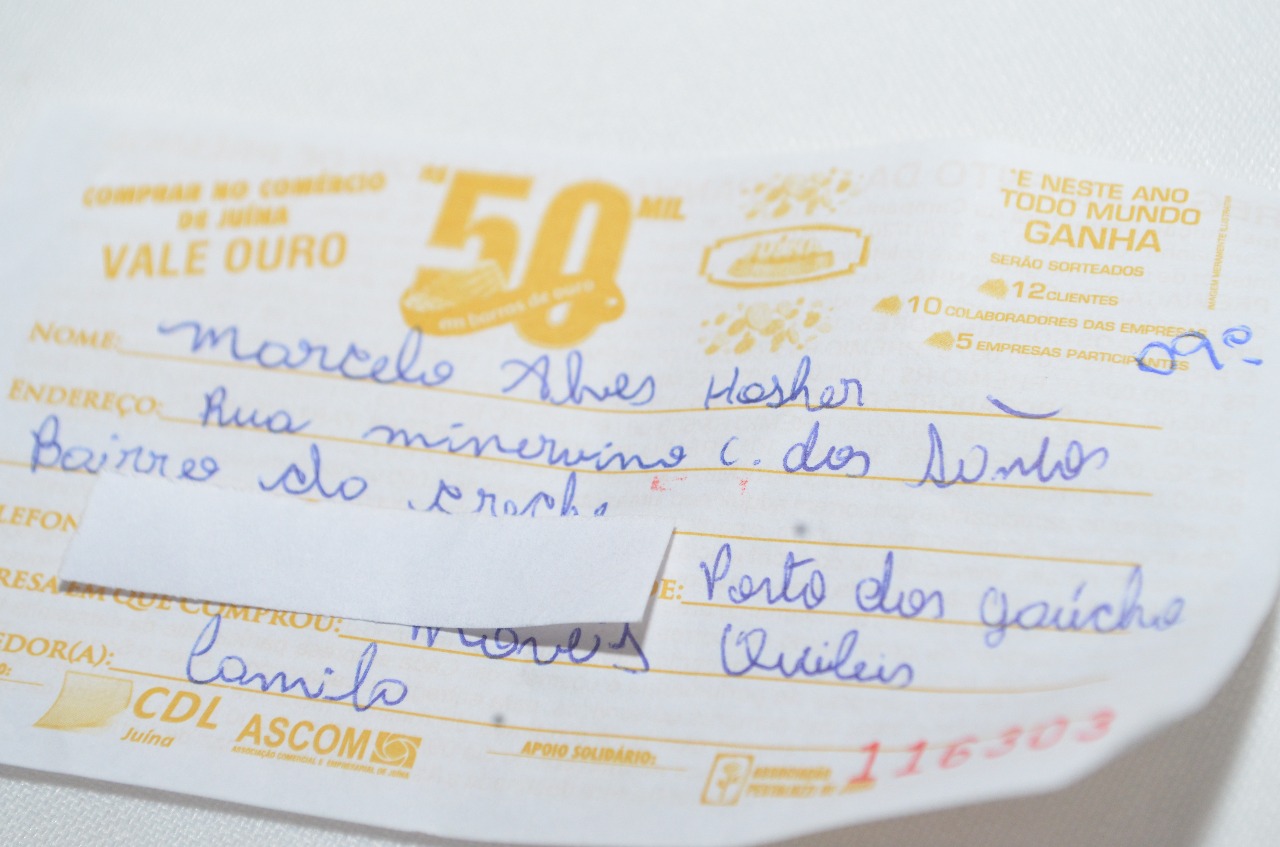 COMPRAR NO COMÉRCIO
DE JUÍNA
VALE OURO
R$ 50 MIL
em barras de ouro
'E NESTE ANO
TODO MUNDO
GANHA
SERÃO SORTEADOS
12 CLIENTES
10 COLABORADORES DAS EMPRESAS
5 EMPRESAS PARTICIPANTES
09º
NOME: Marcelo Alves Hosher
ENDEREÇO: Rua minervino C. dos Santos
Bairro do
LEFON
E: Porto dos gaúcho
RESA EM QUE COMPROU: Moveis
EDOR(A): Camilo
CDL
Juína
ASCOM
ASSOCIAÇÃO COMERCIAL E EMPRESARIAL DE JUÍNA
APOIO SOLIDÁRIO:
ASSOCIAÇÃO
PESTALOZZI
116303